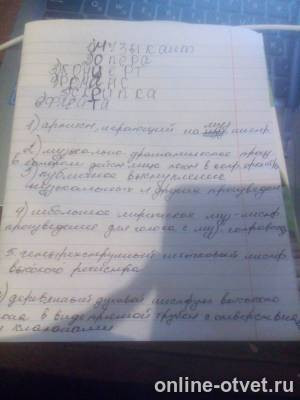 1музыкант
2опера
3концерт
4романс
5скрипка
6флейта
1) артист, играющий на муз инстр.
2) музыкально драматическое произ
в котором действую поют в сопр. оркестра
3) публичное выступление
музыкальных и других произведен
4) небольшое лирическое муз-инстр
произведение для голоса с муз сопровожд
5. четырехструнный смычковый инстр.
высокого регистра
6) деревянный духовой инструм высокого
в виде прямой трубки с отверстиями
и клапанами
online-otvet.ru